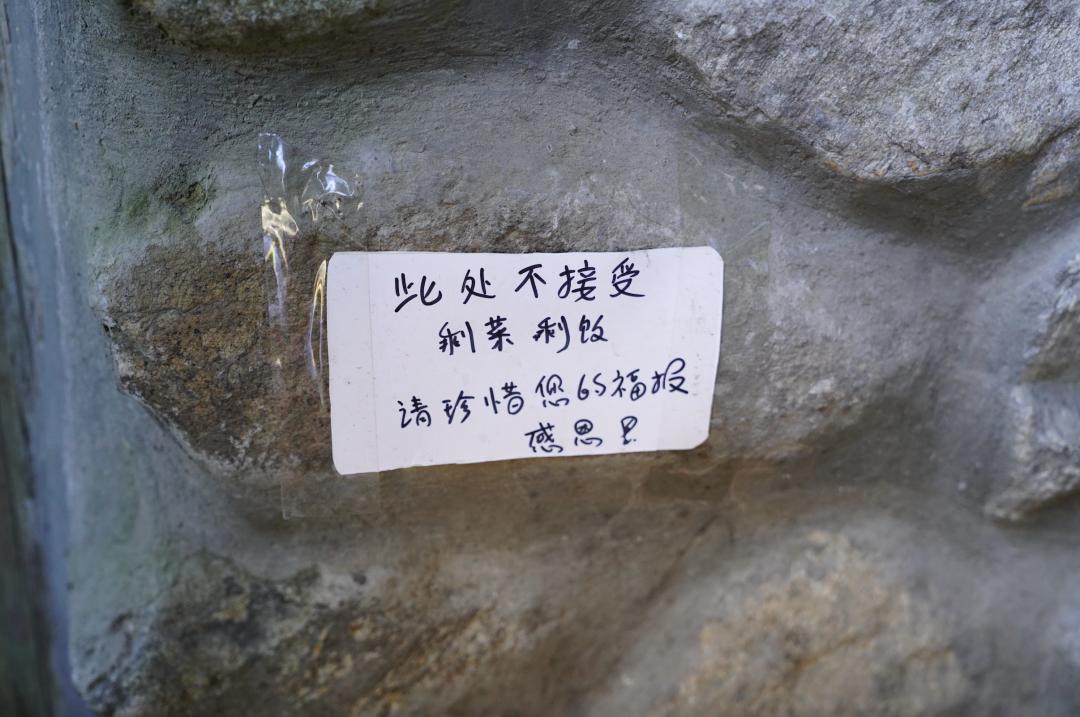 此处不接受
剩菜剩饭
请珍惜您的福报
感恩!